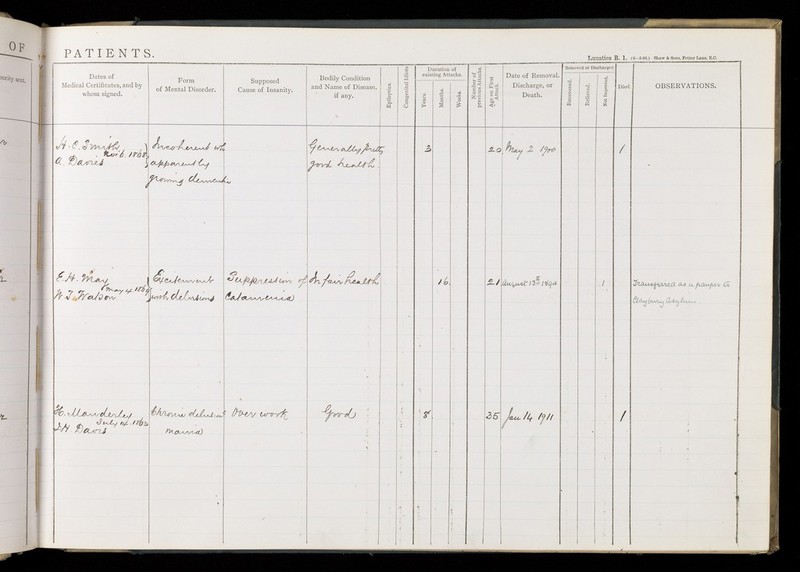 OF
PATIENTS.
Lunatics R. 1. Shaw & Sons, Fetter Lane, E.C.
Dates of
Medical Certificates, and by
whom signed.
Form
of Mental Disorder.
Supposed
Cause of Insanity.
Bodily Condition
and Name of Disease,
if any.
Epileptics.
Congenital Idiots
Duration of
existing Attacks.
Years.
Months.
Weeks.
Number of
previous Attacks.
Age on First
Attack
Date of Removal,
Discharge, or
Death.
Removed or Discharged
Recovered.
Relieved.
Not Improved.
Died.
OBSERVATIONS.
H. C. Smith
Nov 6. 1868
A. Davies
Incoherent with
apparently
growing dementia
Generally pretty
good health
3
20
May 2 1900
1
E. H. May
May 4 186
W. T. Watson
Excitement
with delusions
Suppression of
Catamenia
In fair health
16
21
August 13th 1890
1
Transferred as a pauper to
Claybury Asylum
H. Maunderley
July 14. 186
J. H. Davis
Chronic delusional
mania
Over work
Good
8
35
Jan 14 1911
1